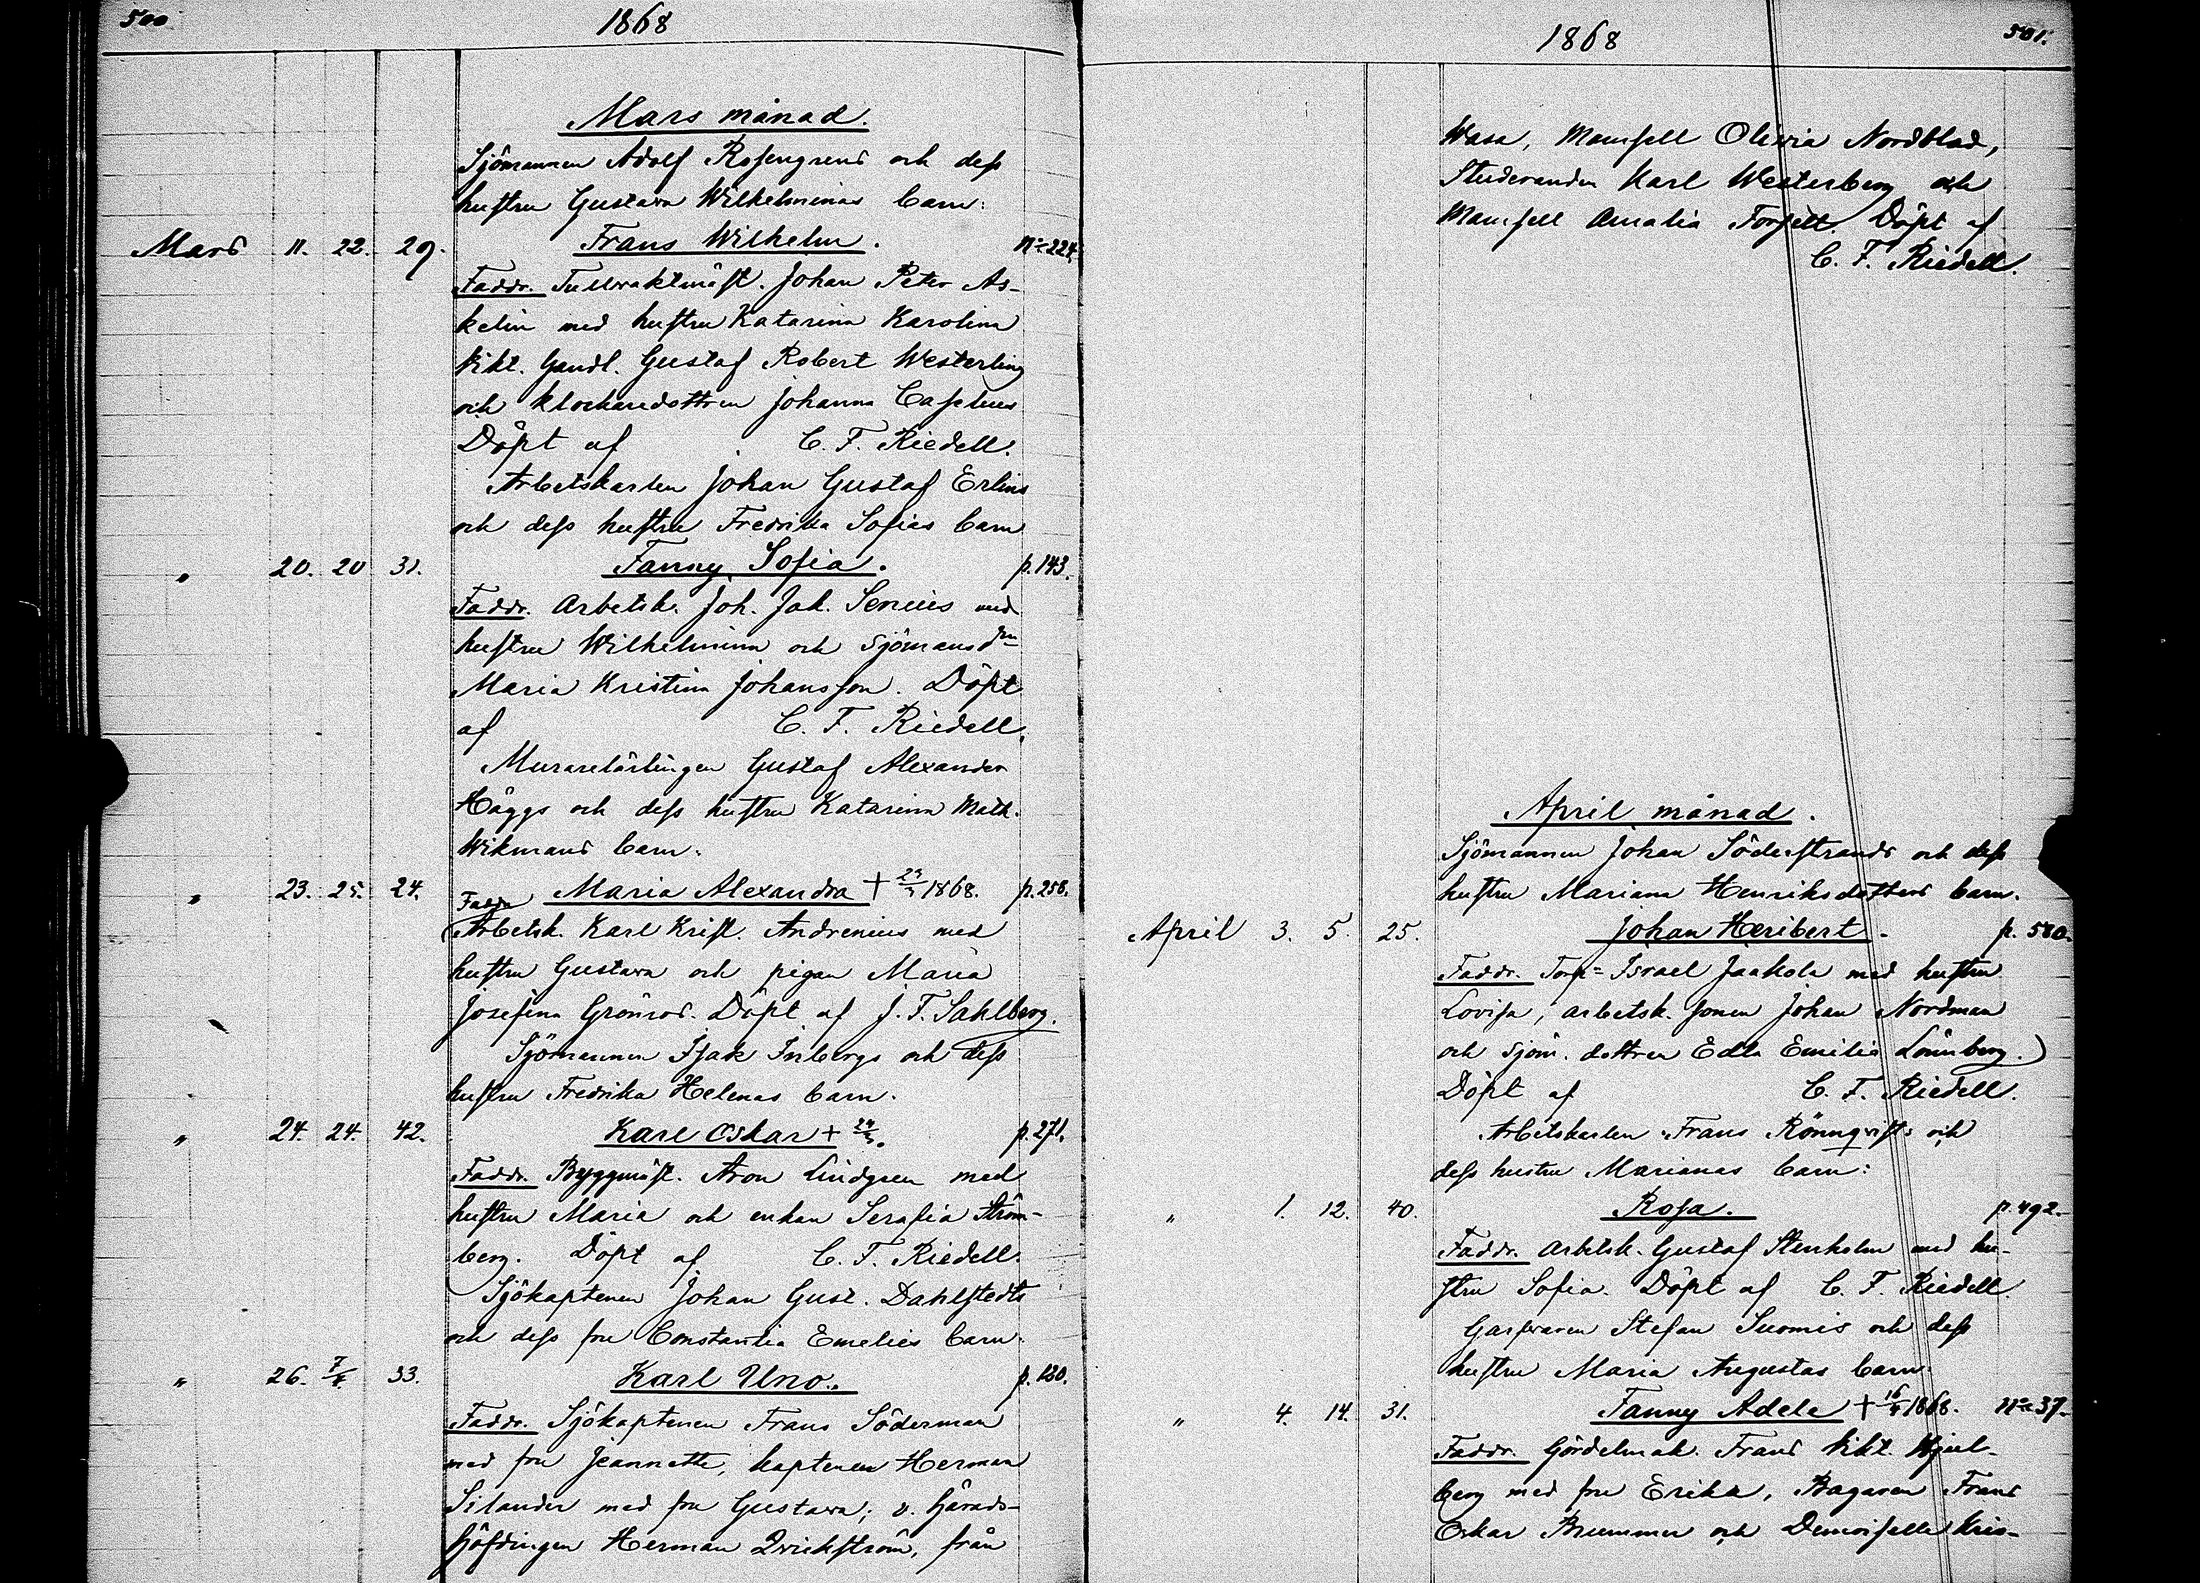 500
1868
Mars månad.
Sjömannen Adolf Rosengrens och dess
hustru Gustava Wilhelminas barn:
Mars 11. 22. 29. Frans Wilhelm. No 224.
Faddr. Tullvaktmäst. Johan Peter As-
kelin med hustru Katarina Karolina
Vikt. Handl. Gustaf Robert Westerling
och klockaredottren Johanna
Döpt af C. F. Riedell.
Arbetskarlen Johan Gustaf Erlins
och dess hustru Fredrika Sofias barn
" 20. 20 31. Fanny Sofia. p. 143.
Faddr. Arbetsk. Joh. Jak. Senius med
hustru Wilhelmina och sjömansd:n
Maria Kristina Johansson. Döpt
af C. F. Riedell.
Murarelärlingen Gustaf Alexander
Häggs och dess hustru Katarina Math.
Wikmans barn.
" 23. 25. 24. Faddr Maria Alexandra + 1868. p. 258.
Arbetsk. Karl Krist. Andrenius med
hustru Gustava och pigan Maria
Josefina Grönros. Döpt af J. F. Sahlberg.
Sjömannen Isak Inbergs och dess
hustru Fredrika Helenas barn.
" 24. 24. 42. Karl Oskar + p. 271.
Faddr. Byggmäst. Aron Lindgren med
hustru Maria och enkan Serafia Ström-
berg. Döpt af C. F. Riedell.
Sjökaptenen Johan Gust. Dahlstedts
och dess fru Constantia Emelies barn
" 26. 7/4. 33. Karl Uno. p. 120.
Faddr. Sjökaptenen Frans Söderman
med fru Jeannette, kaptenen Herman
Silander med fru Gustava; v. härads-
höfdingen Herman Qvickström, från
1868
501.
Wasa, Mamsell Olivia Nordblad,
Studeranden Karl Westerberg och
Mamsell Amalia Forsell. Döpt af
C. F. Riedell.
April månad.
Sjömannen Johan Söderstrands och dess
hustru Mariana Henriksdotters barn.
April 3. 5. 25. Johan Heribert. p. 580.
Faddr. Torp= Israel Jaakola med hustru
Lovisa, arbetsk. sonen Johan Nordman
och sjöm. dottren Edla Emilia Lönnberg.
Döpt af C. F. Riedell.
Arbetskarlen Frans Rönnqvists och
dess hustru Marianas barn:
" 1. 12. 40. Rosa. p. 492.
Faddr. Arbetsk. Gustaf Stenholm med hu-
stru Sofia. Döpt af C. F. Riedell.
Garfvaren Stefan Suomis och dess
hustru Maria Augustas barn:
" 4. 14. 31. Fanny Adele + 16/4 1868. No 37.
Faddr. Gördelmak. Frans Vikt. Hjul-
berg med fru Erika, Bagaren Frans
Oskar Brummer och Demoiselle Kris-